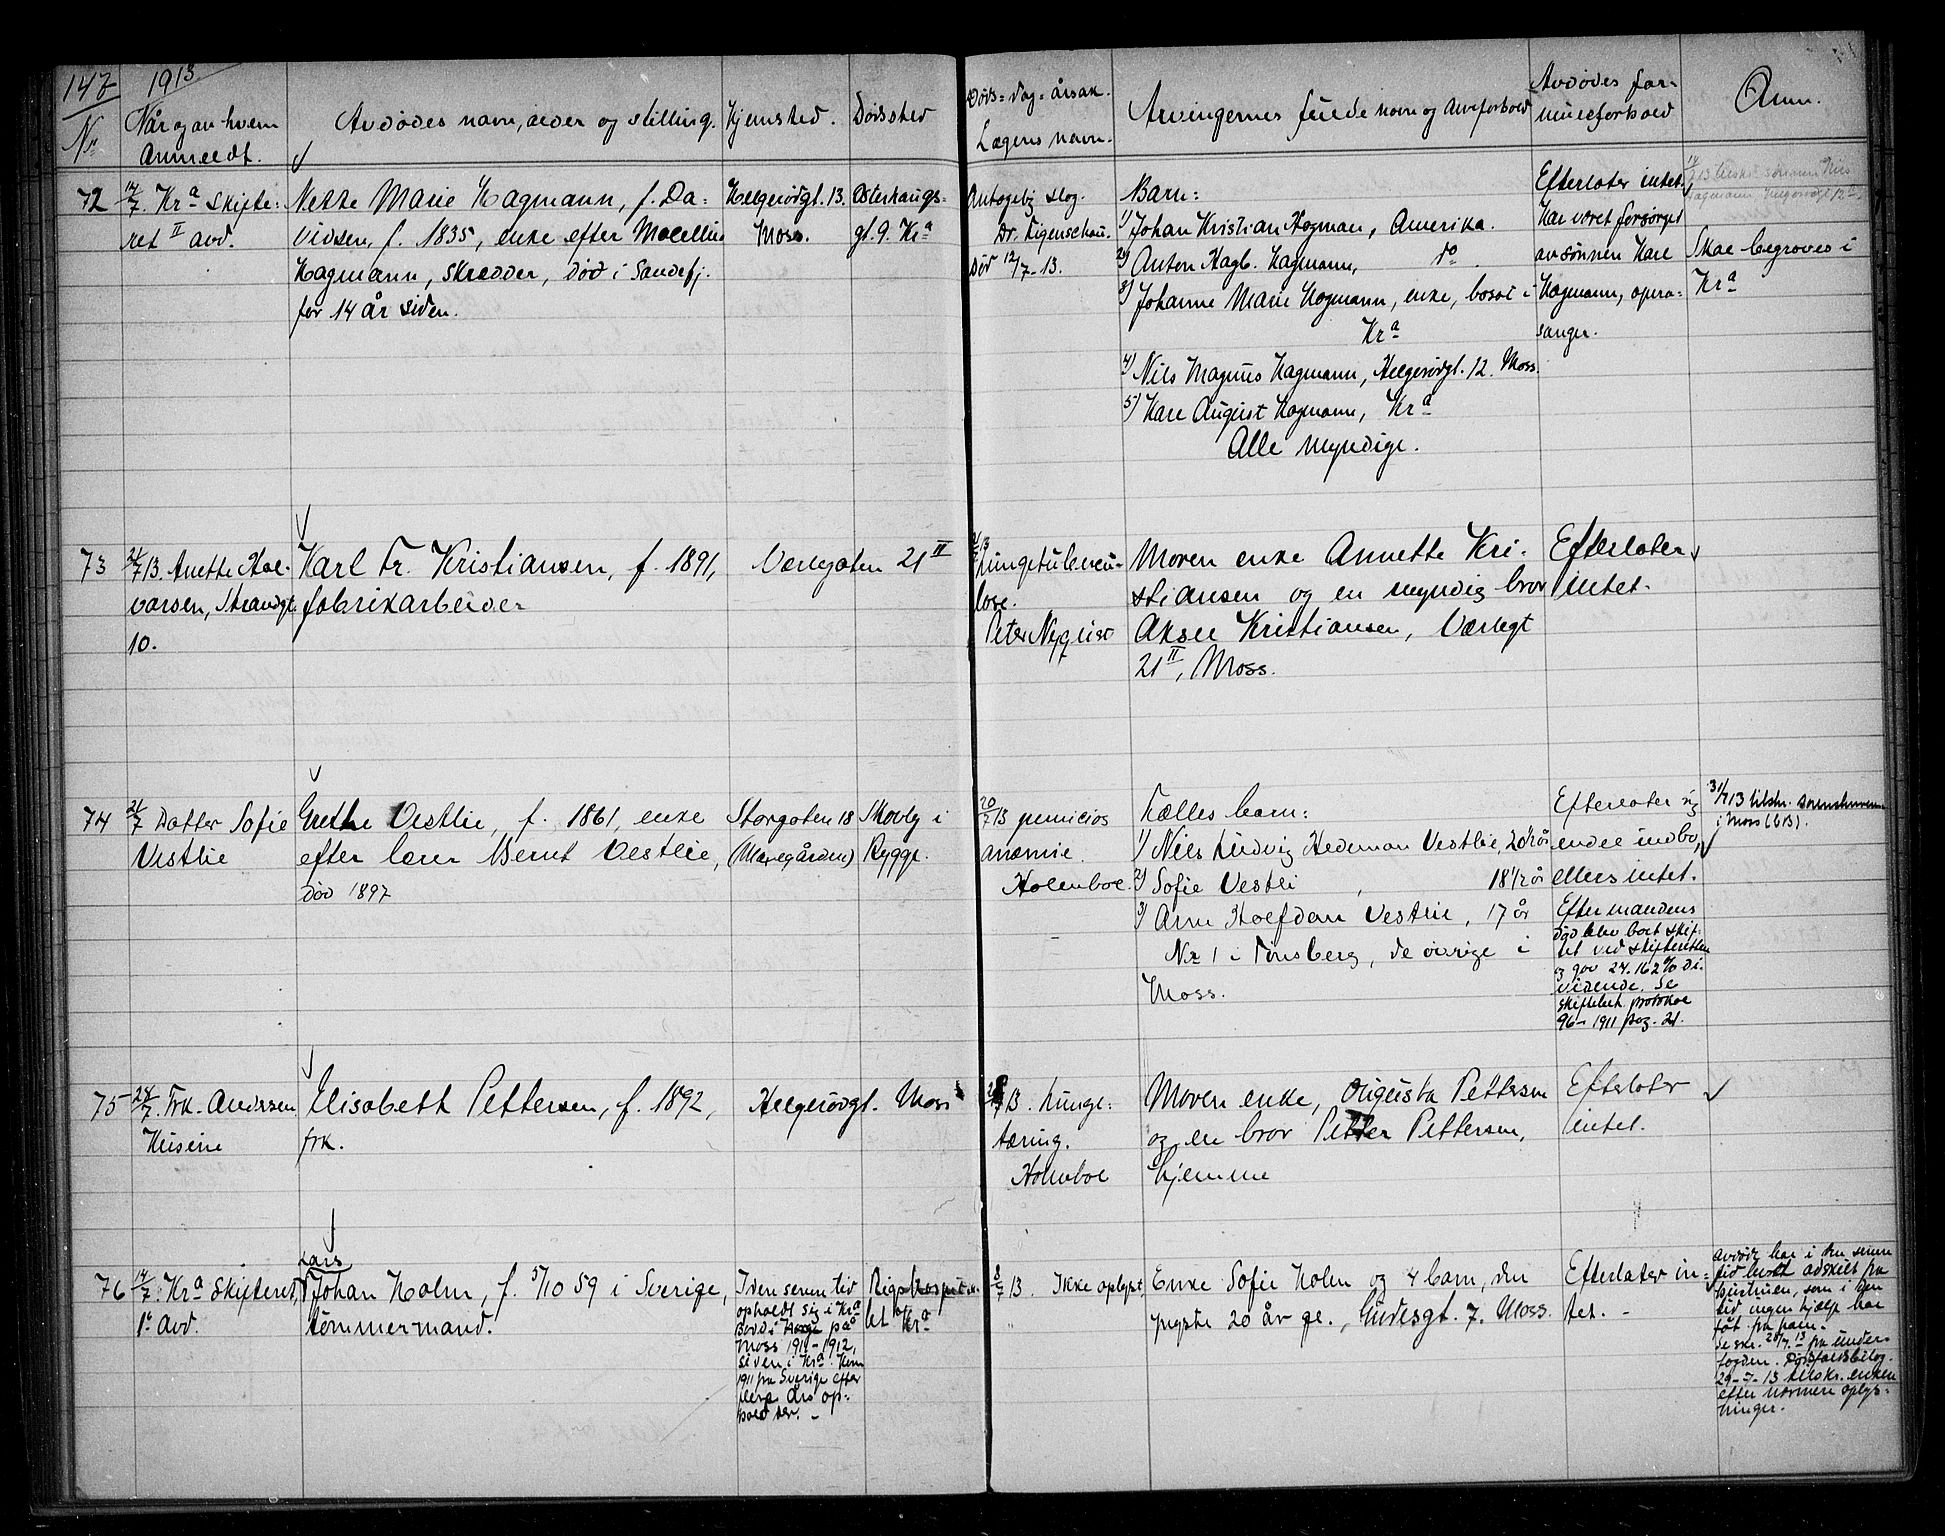 147 1913
Nr
Når og av hvem
Anmeldt.
Avdødes navn, alder og stilling.
Hjemsted.
Dødssted
Døds-dag-årsak.
Lægens navn.
Arvingernes fulde navn og Arveforhold
Avdødes for-
mueforhold
Anm.
72
14/7. Kra Skifte-
ret II avd.
Nette Marie Hagmann, f. Da-
vidsen, f. 1835, enke efter Marcellius
Hagmann, skredder, død i Sandefj.
for 14 år siden.
Helgerødgt. 13.
Moss.
Østerhaugs-
gt. 9. Kra
Antagelig slag.
Dr. Eigenschau.
Død 12/7-13.
Barn:
1) Johan Kristian Hagman, Amerika.
2) Anton Hagb. Hagmann, do.
3) Johanne Marie Hagmann, enke, bosat i
Kra
4) Nils Magnus Hagmann, Helgerødgt. 12. Moss.
5) Karl August Hagmann, Kra
Alle myndige.
Efterlater intet.
Har været forsørget
av sønnen Karl
Hagmann, opera-
sanger.
Skal begraves i
Kra
73
21/7 13. Anette Hal-
varsen, Strandgt.
10.
Karl Fr. Kristiansen, f. 1891,
fabrikarbeider
Værlegaten 21 II
Lungetuberku-
lose.
Peter Nyquist
Moren enke Annette Kri-
stiansen og en myndig bror
Aksel Kristiansen, Værlegt
21 II, Moss.
Efterlater
intet.
74
21/7 Datter Sofie
Vestlie
Grethe Vestlie, f. 1861, enke
efter lærer Bernt Vestlie,
død 1897
Storgaten 18
(Mæregården)
Skovly i
Rygge.
20/7 13 perniciøs
anæmie.
Holmboe.
Fælles barn:
1) Nils Ludvig Hedeman Vestlie, 20½ år
2) Sofie Vestli, 18½ år
3) Arne Halfdan Vestlie, 17 år
Nr 1 i Tønsberg, de øvrige i
Moss.
Efterlater sig
endel indbo,
ellers intet.
Efter mandens
død blev boet skif-
tet ved skifteretten
og gav 24.162% di-
vidende. Se
skifteret. protokol
96-1911 pag. 21.
31/7 13 tilskr.
i Moss (613).
75
24/7. Frk. Andersen
Elisabeth Pettersen, f. 1892,
frk.
Helgerødgt. Moss
13. Lunge-
tæring.
Holmboe
Moren enke, Augusta Pettersen
og en bror Petter Pettersen,
hjemme
Efterlater
intet.
76
14/7. Kra Skifteret,
1ste Avd.
Lars
Johan Holm, f. 5/10 59 i Sverige,
tømmermand.
I den senere tid
opholdt sig i Kra
Bodd i Norge på
Moss 1911-1912,
siden i Kra. Kom
1911 fra Sverige efter
flere års op-
hold der. -
Rigshospita-
let Kra
8/7 13. Ikke oplyst
Enke Sofie Holm og 4 barn, den
yngste 20 år gl., Gudesgt. 7. Moss.
Efterlater in-
tet. -
Avdøde har i den senere
tid levet adskilt fra
hustruen, som i den
tid ingen hjælp har
fåt fra ham.
Se skr. 28/7. 13 fra under-
fogden. Dødsfaldsbilag.
29-7-13 tilskr. enken
efter nærmere oplys-
ninger.